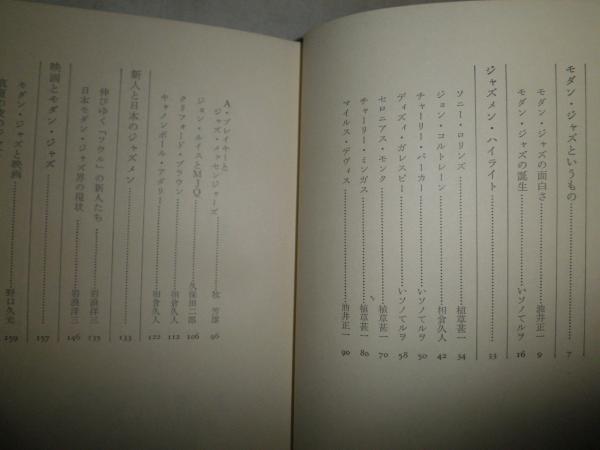 モダン・ジャズというもの……7
モダン・ジャズの面白さ……油井正一 9
モダン・ジャズの誕生……いソノてルヲ 16
ジャズメン・ハイライト……33
ソニー・ロリンズ……植草甚一 34
ジョン・コルトレーン……相倉久人 42
チャーリー・パーカー……いソノてルヲ 50
ディズィ・ガレスピー……いソノてルヲ 58
セロニアス・モンク……植草甚一 70
チャーリー・ミンガス……植草甚一 80
マイルス・デヴィス……油井正一 90
A・ブレイキーと
ジャズ・メッセンジャーズ……牧芳雄 96
ジョン・ルイスとMJQ……久保田二郎 106
クリフォード・ブラウン……相倉久人 112
キャノンボール・アダリー……相倉久人 122
新人と日本のジャズメン……133
伸びゆく「ソウル」の新人たち……岩浪洋三 135
日本モダン・ジャズ界の現状……岩浪洋三 146
映画とモダン・ジャズ……157
モダン・ジャズと映画……野口久光 159